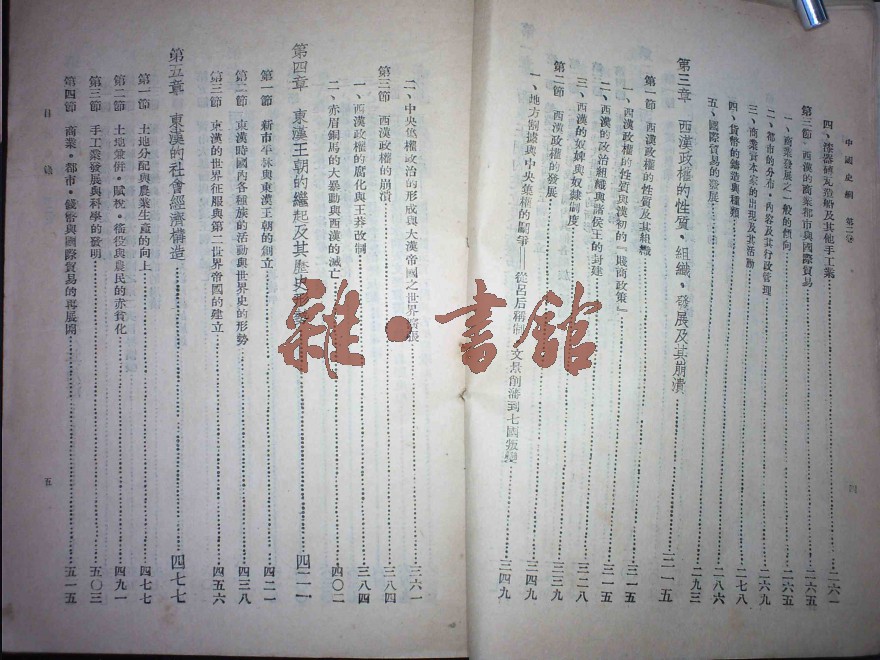 中國史綱 第二卷
四、漆器磚瓦造船及其他手工業……二六一
第三節 西漢的商業都市與國際貿易……二六五
一、商業發展之一般的傾向……二六五
二、都市的分布、內容及其行政管理……二六九
三、商業資本家的出現及其活動
四、貨幣的鑄造與種類……二七八
五、國際貿易的發展……二八六
二九三
第三章 西漢政權的性質、組織、發展及其崩潰……三一五
第一節 西漢政權的性質及其組織
一、西漢政權的性質與漢初的『賤商政策』……三一五
二、西漢的政治組織與諸侯王的封建……三一五
三、西漢的奴婢與奴隸制度……三二八
第二節 西漢政權的發展……三三九
一、地方割據與中央集權的鬥爭——從呂后稱制文景削藩到七國叛變……三四九
三四九
四
二、中央集權政治的形成與大漢帝國之世界擴張……三六一
第三節 西漢政權的崩潰……三八四
一、西漢政權的腐化與王莽改制……三八四
二、赤眉銅馬的大暴動與西漢的滅亡……四〇二
第四章 東漢王朝的繼起及其歷史形勢……四二一
第一節 新市平林與東漢王朝的創立……四二一
第二節 東漢時國內各種族的活動與世界史的形勢……四三八
第三節 東漢的世界征服與第二世界帝國的建立……四五六
第五章 東漢的社會經濟構造……四七七
第一節 土地分配與農業生產的向上……四七七
第二節 土地兼併・賦稅・徭役與農民的赤貧化……四九一
第三節 手工業發展與科學的發明……五〇三
第四節 商業・都市・錢幣與國際貿易的再展開……五一五
目錄
五
雜・書館